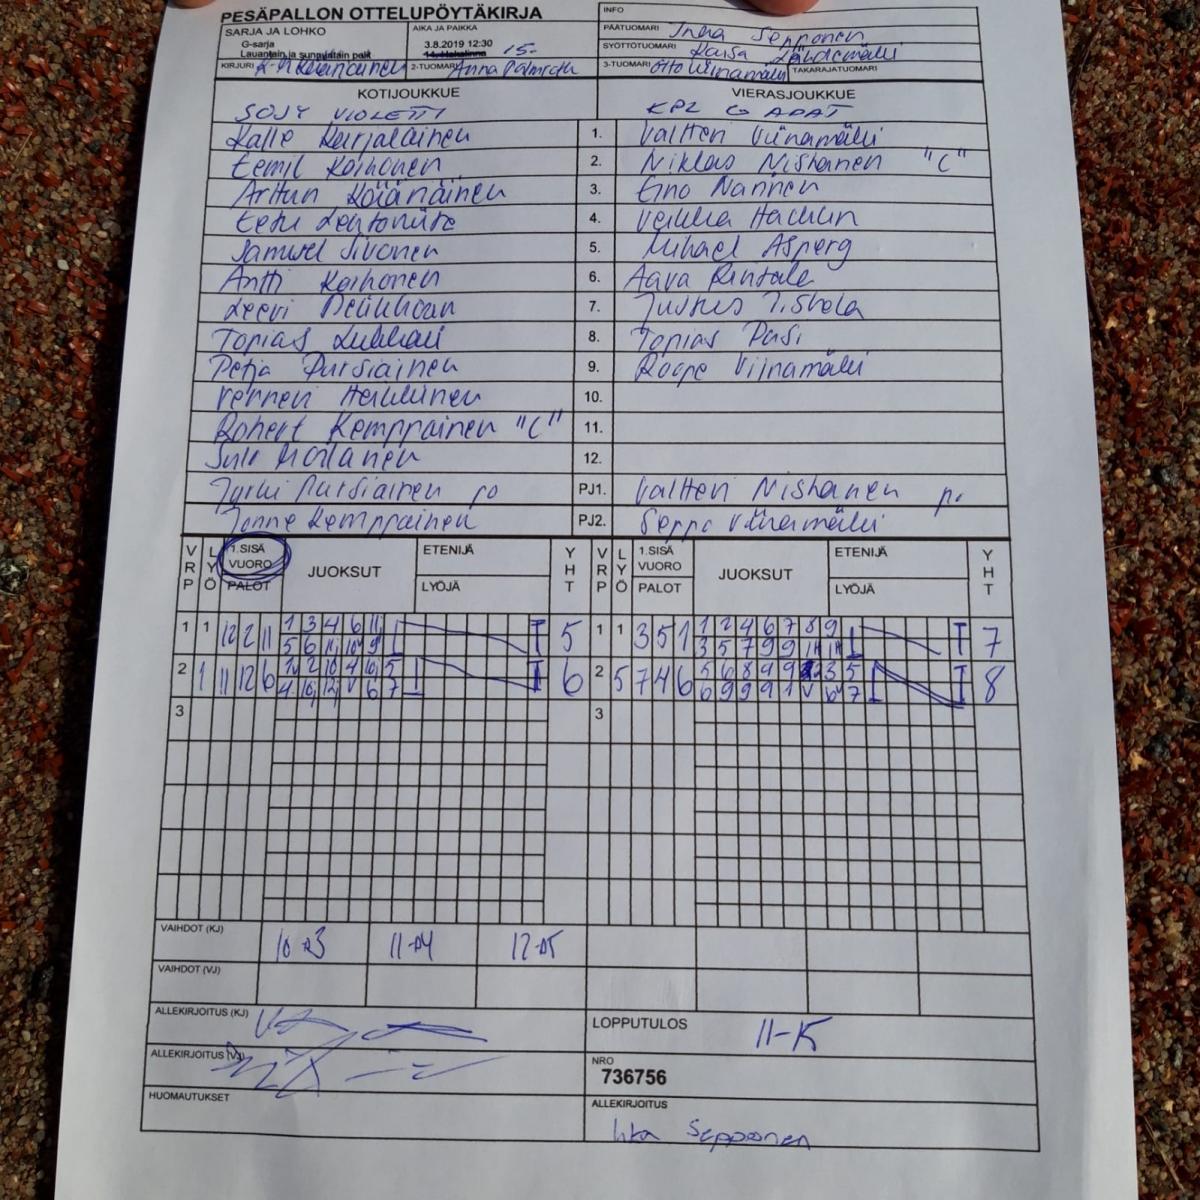 PESÄPALLON OTTELUPÖYTÄKIRJA
INFO
SARJA JA LOHKO
G-sarja
Lauantain ja sunnuntain pelit
AIKA JA PAIKKA
3.8.2019 12:30
15-
PÄÄTUOMARI Inka Sepponen
SYÖTTÖTUOMARI Kaisa
KIRJURI
2-TUOMARI Anna Palmroth
3-TUOMARI Otto Viinamäki TAKARAJATUOMARI
KOTIJOUKKUE VIERASJOUKKUE
SOJY VIOLETTI KPL G APAT
Kalle Karjalainen 1. Valtteri Viinamäki
Eemil Koihonen 2. Niklas Nishanen "C"
Arttun 3. Eino Nannen
Eetu 4. Veikka
Samuel Sivonen 5. Mihael Asperg
Antti Koihonen 6. Aava Rintala
Leevi 7. Justus
Topias 8. Topias Pasi
Petja Pursiainen 9. Roope Viinamäki
10.
Robert Kemppainen "C" 11.
Suli Moilanen 12.
Jyrki Pursiainen po PJ1. Valtteri Nishanen p.
Jonne Kemppainen PJ2. Seppo Viinamäki
VRP LYÖ 1.SISÄ VUORO PALOT JUOKSUT ETENIJÄ LYÖJÄ YHT VRP LYÖ 1.SISÄ VUORO PALOT JUOKSUT ETENIJÄ LYÖJÄ YHT
1 1 12 2 11 1 3 4 6 11 5 1 1 3 5 1 1 2 4 6 7 8 9 7
5 6 11 10 9 3 5 7 9 9
2 1 11 12 6 2 10 4 10 5 6 2 5 7 4 6 5 6 8 9 9 2 3 5 8
4 10 12 6 7 6 9 9 9 1 6 7
3 3
VAIHDOT (KJ) 10-3 11-4 12-5
VAIHDOT (VJ)
ALLEKIRJOITUS (KJ)
LOPPUTULOS 11-15
ALLEKIRJOITUS (VJ)
NRO
736756
HUOMAUTUKSET
ALLEKIRJOITUS
Inka Sepponen